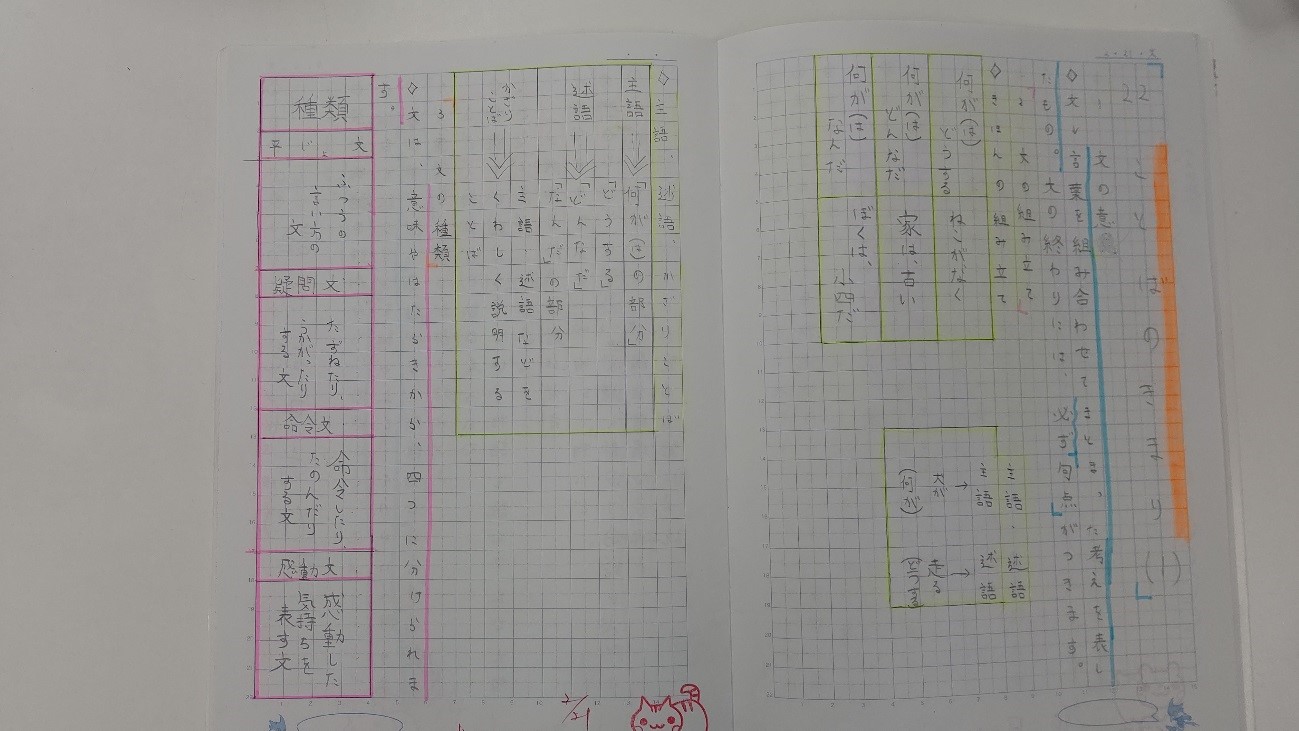 22
ことばのきまり(1)
文の意
◇文…言葉を組み合わせてまとまった考えを表し
たもの。文の終わりには、必ず句点がつきます。
文の組み立て
◇きほんの組み立て
何が(は)どうする
ねこがなく
何が(は)どんなだ
家は、古い
何が(は)なんだ
ぼくは、小四だ
主語・述語
主語
述語
犬が
走る
(何が)
(どうする)
◇主語、述語、かざりことば
主語…「何が(は)の部分」
述語…「どうする」
「どんなだ」
「なんだ」の部分
かざりことば
主語・述語などを
くわしく説明する
ことば
文の種類
◇文は、意味やはたらきから、四つに分けられま
す。
種類
平じょ文
ふつうの
言い方の
文
疑問文
たずねたり、
うかがったり
する文
命令文
命令したり、
たのんだり
する文
感動文
感動した
気持ちを
表す文
2/21